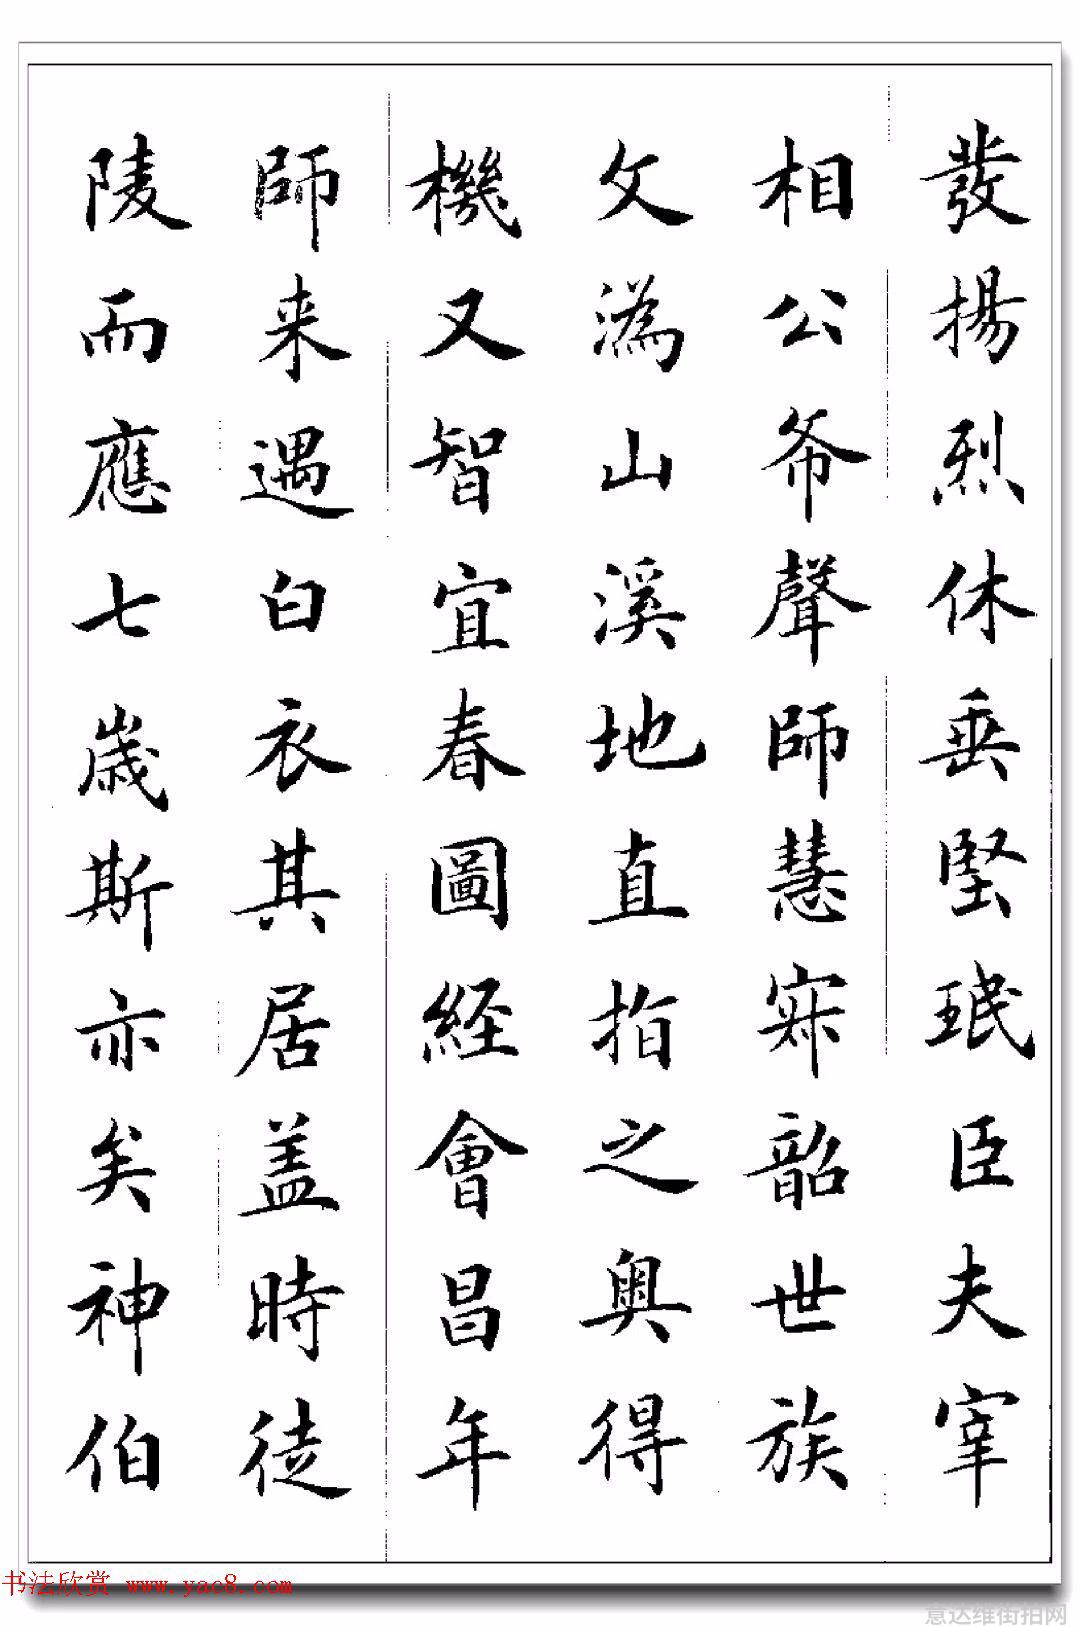 發揚烈休垂堅珉臣夫宰
相公爷聲師慧寂韶世族
文溈山溪地直指之奥得
機又智宜春圖経會昌年
師来遇白衣其居盖時徒
陵而應七歳斯亦矣神伯
书法欣赏 www.yac8.com
意达维街拍网